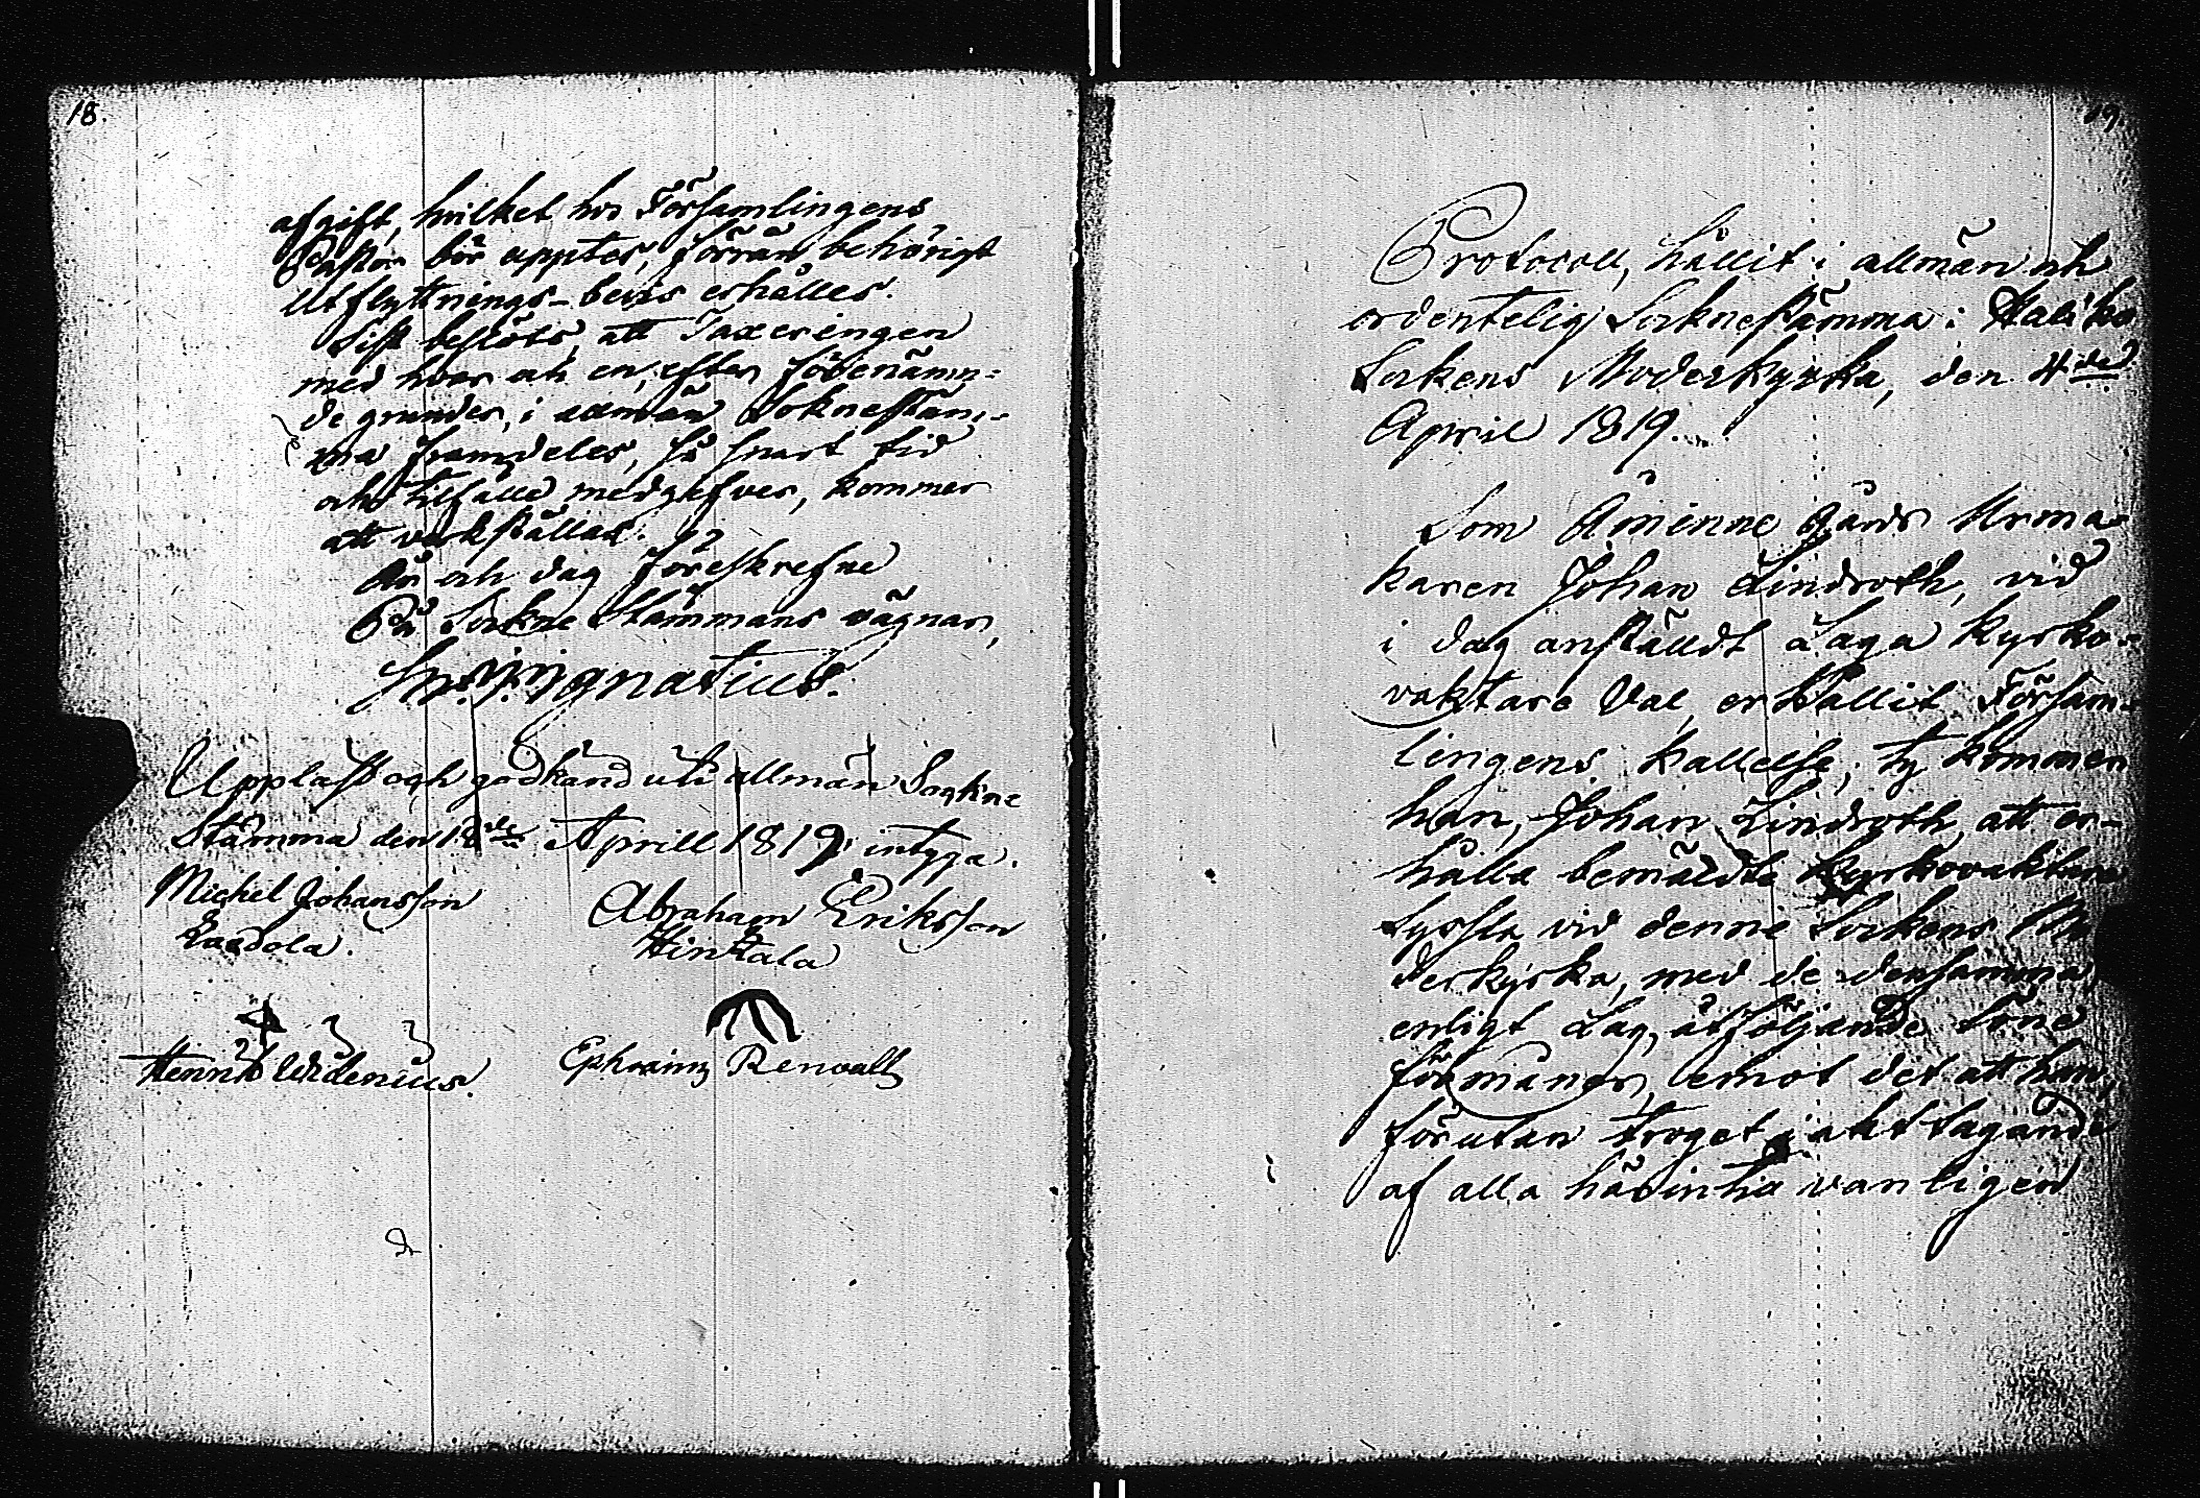 18.
afgift, hvilket hos Församlingens
Pastor bör upptes, förrän behörigt
Utflyttnings-bevis erhålles.
Sist beslöts, att Taxeringen
med hvar och en, efter förenämn-
de grunder, i allmän Sokneståm-
ma framdeles, så snart tid
och tilfälle medgifver, kommer
att verkställas.
År och dag föreskrefne
På Sockne Stämmans vägnar,
Ignatius.
Uppläst ogh godkänd uti allmän Sogkne
Stämma den 18de Aprill 1819, intyga.
Michel Johansson
Abraham Eriksson
Hintala
Henrik Widenius.
Ephraim Renvall
19.
Protocoll, hållit i allmän och
ordentelig Sockneståmma i Haliko
Sockens Moderkyrka, den 4de
April 1819.
Som Åminne Gårds Urma-
karen Johan Lindroth, vid
i dag anstäldt Laga kyrko-
vaktare Val, erhållit Försam-
lingens kallelse; ty kommer
han, Johan Lindroth, att er-
hålla bemälde Kyrkovaktare
Syssla vid denne Sockens Mo
derkyrka, med de densamma,
enligt Lag, åtföljande löne
förmåner, emot det att han,
förutan troget i akt tagande
af alla härintill vanligen